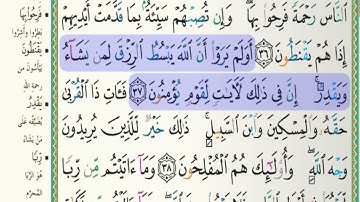 النَّاسَ رَحْمَةً فَرِحُوا۟ بِهَا ۖ وَإِن تُصِبْهُمْ سَيِّئَةٌۢ بِمَا قَدَّمَتْ أَيْدِيهِمْ
إِذَا هُمْ يَقْنَطُونَ ٣٦ أَوَلَمْ يَرَوْا۟ أَنَّ اللَّهَ يَبْسُطُ الرِّزْقَ لِمَن يَشَآءُ
وَيَقْدِرُ ۚ إِنَّ فِى ذَٰلِكَ لَـَٔايَـٰتٍ لِّقَوْمٍ يُؤْمِنُونَ ٣٧ فَـَٔاتِ ذَا الْقُرْبَىٰ
حَقَّهُۥ وَالْمِسْكِينَ وَابْنَ السَّبِيلِ ۚ ذَٰلِكَ خَيْرٌ لِّلَّذِينَ يُرِيدُونَ
وَجْهَ اللَّهِ ۖ وَأُو۟لَـٰٓئِكَ هُمُ الْمُفْلِحُونَ ٣٨ وَمَآ ءَاتَيْتُم مِّن رِّبًا
فَرِحُوا بِهَا
بَطِرُوا وَأَشِرُوا
يَقْنَطُونَ
يَيْأَسُونَ مِن
رَحْمَةِ اللهِ
يَقْدِرُ
يُضَيِّقُهُ عَلَى
مَنْ يَشَاءُ
رِّبًا
هُوَ الرِّبَا
المُحَرَّم